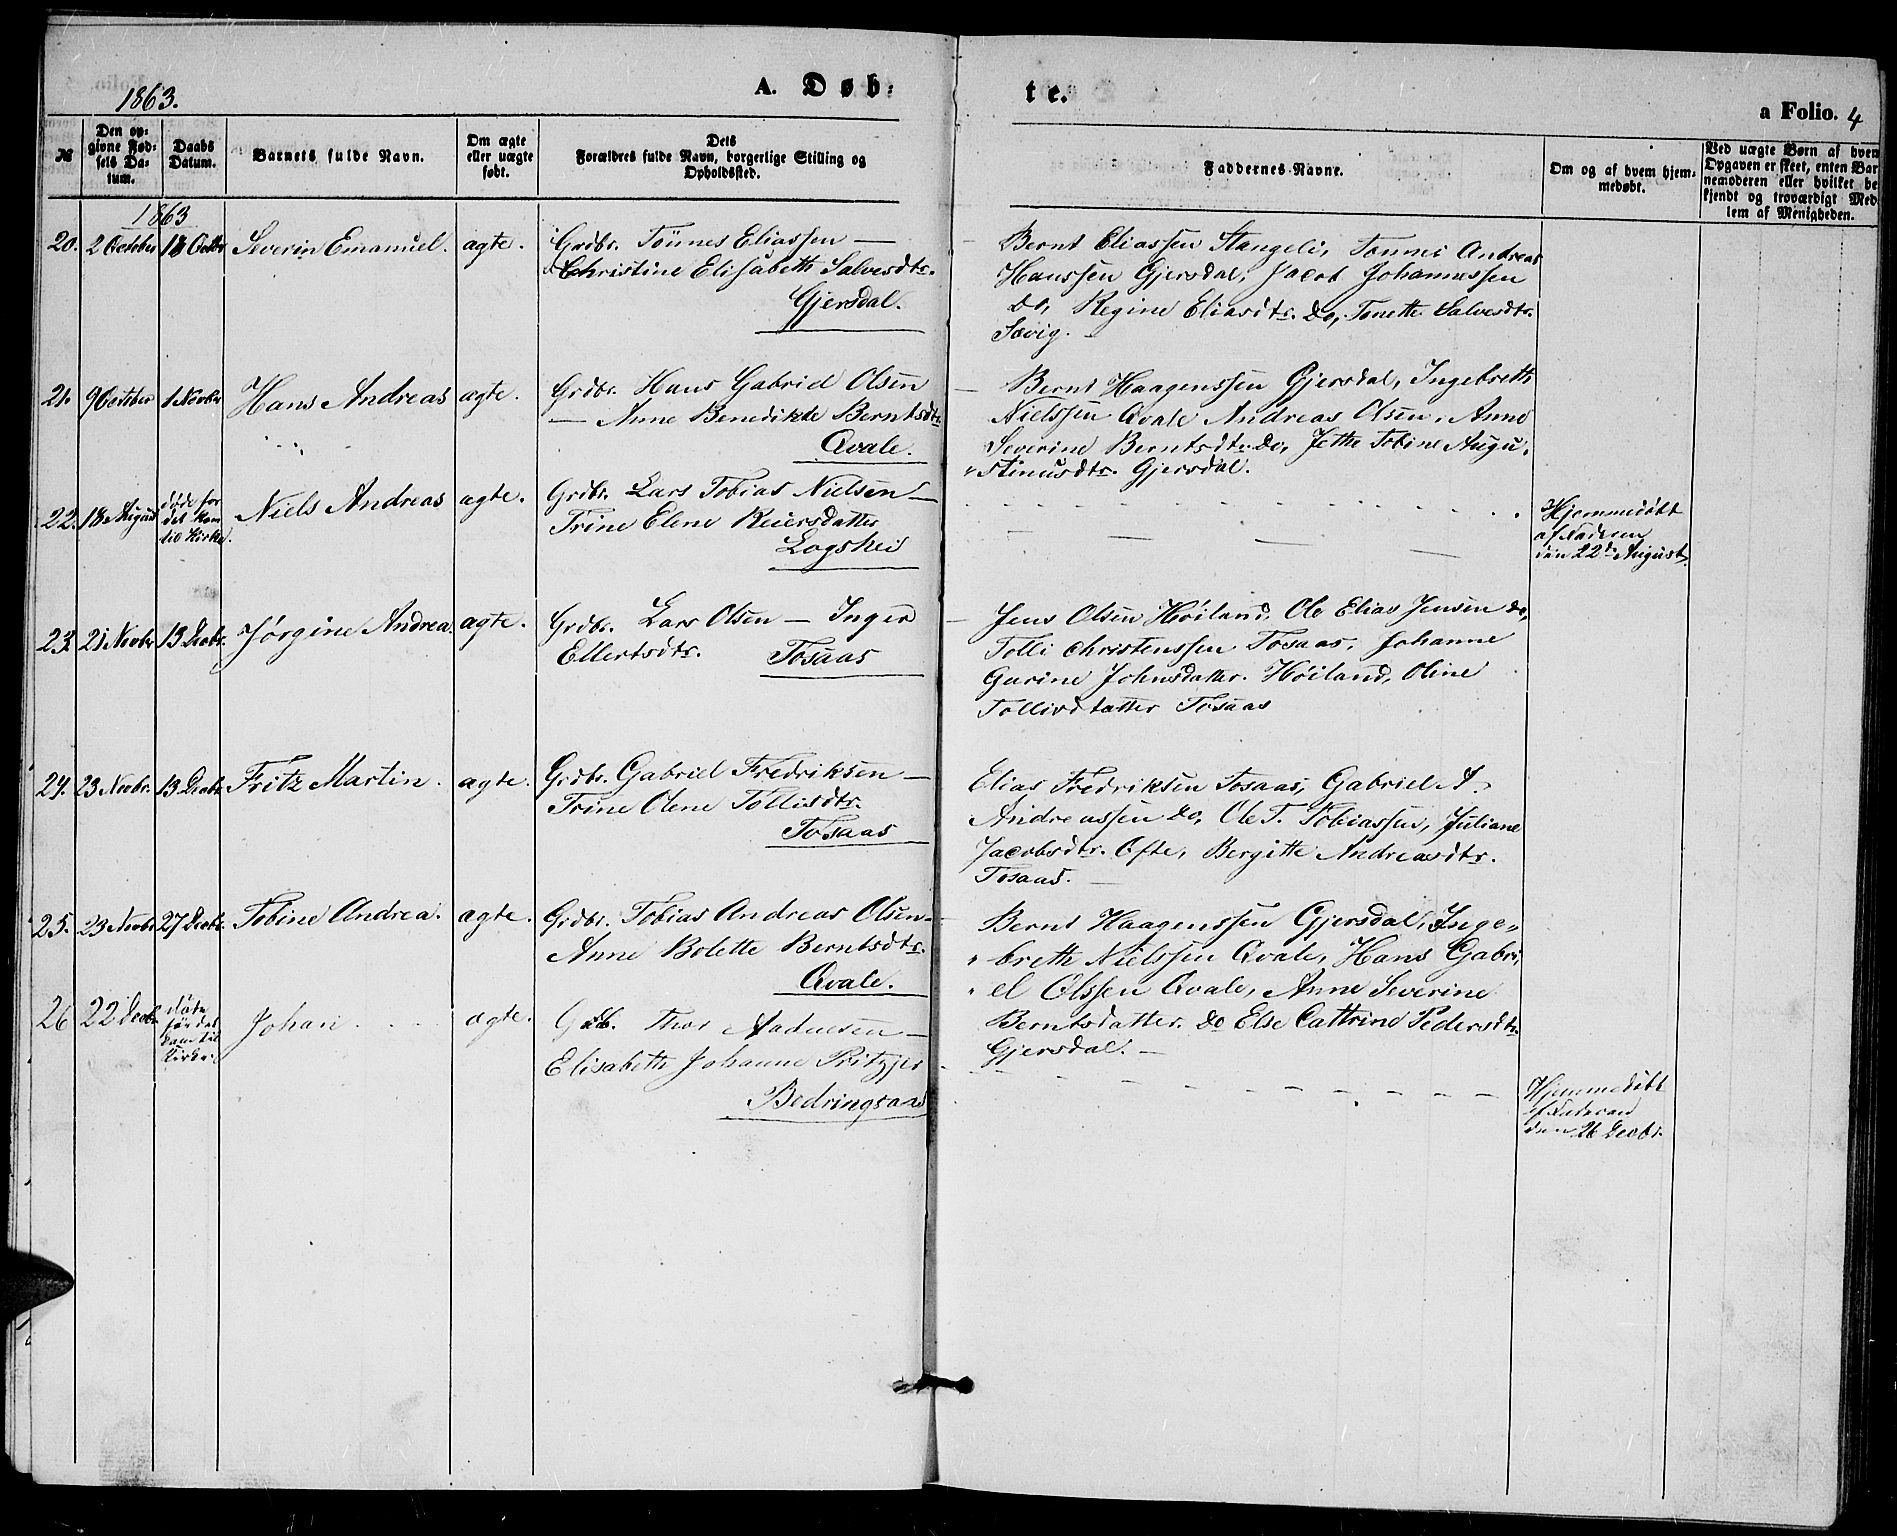 1863.
A. Døb:
te.
a Folio. 4
№
Den op=
givne Fød=
sels Da=
tum.
Daabs
Datum.
Barnets fulde Navn.
Om ægte
eller uægte
født.
Dets
Forældres fulde Navn, borgerlige Stilling og
Opholdssted.
Faddernes Navne.
Om og af hvem hjem=
medøbt.
Ved uægte Børn af hvem
Opgaven er skeet, enten Bar
nemoderen eller hvilket be
kjendt og troværdigt Med
lem af Menigheden.
1863
20. 2 October 18 Octbr Severin Emanuel. ægte.
Grdbr. Tönnes Eliassen —
Christine Elisabeth Salvesdtr.
Gjersdal.
Bernt Eliassen Stangeli, Tonnes Andreas
Hanssen Gjersdal, Jacob Johannessen
do, Regine Eliasdtr. do, Tonette Salvesdtr.
Sævig.
21. 9 October 1 Novbr Hans Andreas ægte.
Grdbr. Hans Gabriel Olsen
— Anne Benedikte Berntsdtr.
Qvale.
Bernt Haagenssen Gjersdal, Ingebreth
Nielssen Qvale Andreas Olsen, Anne
Severine Berntsdtr. do, Jethe Tobine Augu,
stinusdtr. Gjersdal.
22. 18 August døde før
det kom
til Kirke. Niels Andreas ægte.
Grdbr. Lars Tobias Nielsen —
Trine Elene Reiersdatter
Logshei
Hjemmedöbt
af Faderen
den 22de August.
23. 21 Novbr 13 Decbr. Jørgine Andrea. ægte.
Grdbr. Lars Olsen — Inger
Ellertsdtr. Tosaas
Jens Olsen Höiland, Ole Elias Jensen do,
Tolli Christenssen Tosaas, Johanne
Gurine Johnsdatter. Höiland, Oline
Tollivdatter Tosaas
24. 23 Novbr. 13 Decbr Fritz Martin. ægte.
Grdbr. Gabriel Fredriksen —
Trine Olene Tollisdtr.
Tosaas
Elias Fredriksen Tosaas, Gabriel A.
Andreassen do, Ole T. Tobiassen, Juliane
Jacobsdtr. Ofte, Bergitte Andreasdtr.
Tosaas.
25. 23 Novbr 27 Decbr. Tobine Andrea. ægte.
Grdbr. Tobias Andreas Olsen —
Anne Bolette Berntsdtr.
Qvale.
Bernt Haagenssen Gjersdal, Inge=
breth Nielssen Qvale, Hans Gabri,
el Olssen Qvale, Anne Severine
Berntsdatter. do Else Cathrine Pedersdtr
Gjersdal. —
26 22 Decbr døde
før det
kom til
Kirke. Johan ægte.
Grdb. Thor Aadnesen —
Elisabeth Johanne Pritzjer
Bedringsaas
Hjemmedöbt
af Faderen
den 26 Decbr.